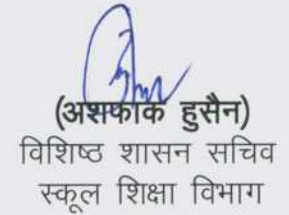 (अशफाक हुसैन)
विशिष्ठ शासन सचिव
स्कूल शिक्षा विभाग